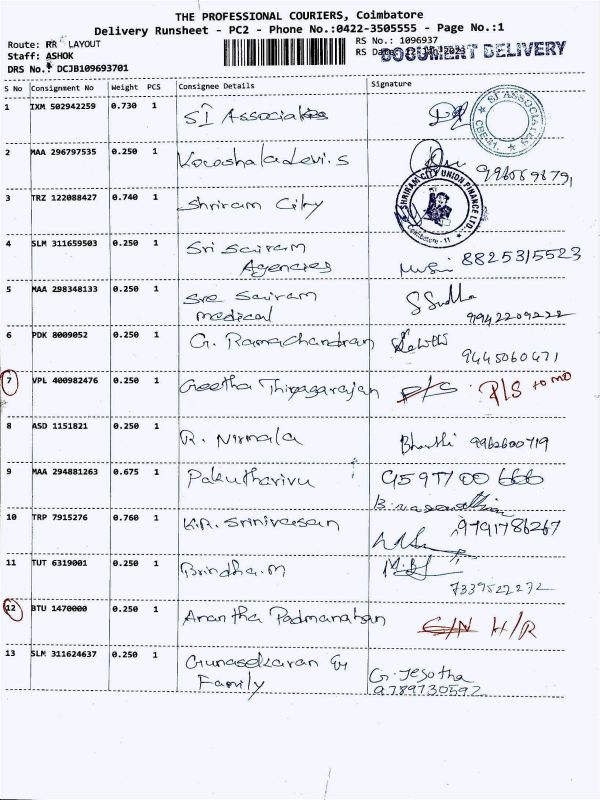 THE PROFESSIONAL COURIERS, Coimbatore
Delivery Runsheet - PC2 - Phone No.:0422-3505555 - Page No.:1
Route: RR LAYOUT
RS No.: 1096937
Staff: ASHOK
RS Date:
DOCUMENT DELIVERY
DRS No.: DCJB109693701
S No Consignment No Weight PCS Consignee Details Signature
1 IXM 502942259 0.730 1 SI Associates
SI ASSOCIATES
2 MAA 296797535 0.250 1
3 TRZ 122088427 0.740 1 Shriram City
SHRIRAM CITY UNION FINANCE LTD.
Coimbatore - 11
4 SLM 311659503 0.250 1 Sri Sairam 8825315523
Agencies
5 MAA 298348133 0.250 1 Sre Sairam S Sudha
medical 9942209222
6 PDK 8009052 0.250 1 G. Ramachandran
9445060471
7 VPL 400982476 0.250 1 Geetha Thiyagarajan P/S P/S
8 ASD 1151821 0.250 1 R. Nirmala Bharthi 9962600719
9 MAA 294881263 0.675 1 Pakutharivu 9597700666
10 TRP 7915276 0.760 1 K.R. Srinivasan 9791786267
11 TUT 6319001 0.250 1 Brindha.m
7339522232
12 BTU 1470000 0.250 1 Anantha Padmanaban H/R
13 SLM 311624637 0.250 1 Gunasekaran & G. Jesotha
Family 9789730592